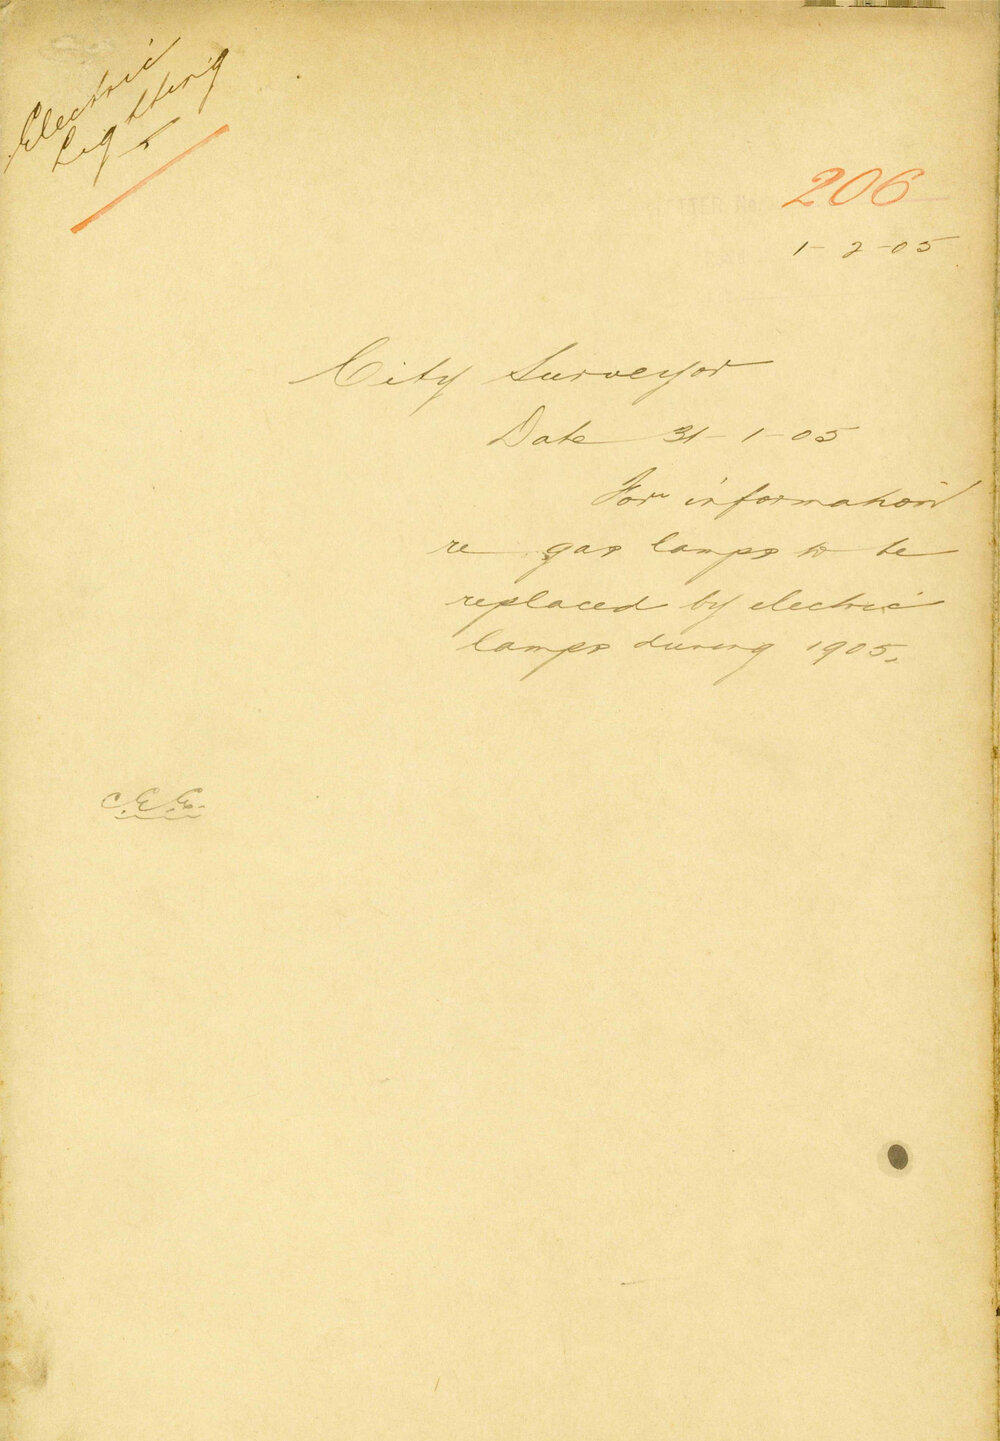 Electric
Lighting
206
1-2-05
City Surveyor
Date 31-1-05
For information
re gas lamps to be
replaced by electric
lamps during 1905.
C.E.E.